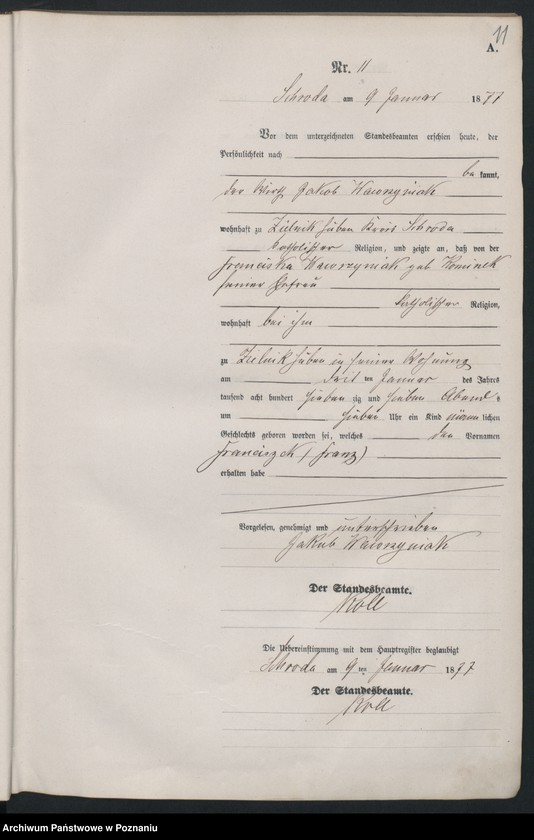 11
A.
Nr. 11
Schroda am 9 Januar 1877
Vor dem unterzeichneten Standesbeamten erschien heute, der
Persönlichkeit nach
be kannt,
der Wirth Jakob Wawrzyniak
wohnhaft zu Zielnik huben Kreis Schroda
katholischer Religion, und zeigte an, daß von der
Franciska Wawrzyniak geb
seiner Ehefrau
katholischer Religion,
wohnhaft bei ihm
zu Zielnik huben in seiner Wohnung
am ten Januar des Jahres
tausend acht hundert sieben zig und sieben Abends
um sieben Uhr ein Kind männ lichen
Geschlechts geboren worden sei, welches den Vornamen
Franciszek (Franz)
erhalten habe
Vorgelesen, genehmigt und unterschrieben
Jakób Wawrzyniak
Der Standesbeamte.
Die Uebereinstimmung mit dem Hauptregister beglaubigt
Schroda am 9 ten Januar 1877
Der Standesbeamte.
Archiwum Państwowe w Poznaniu